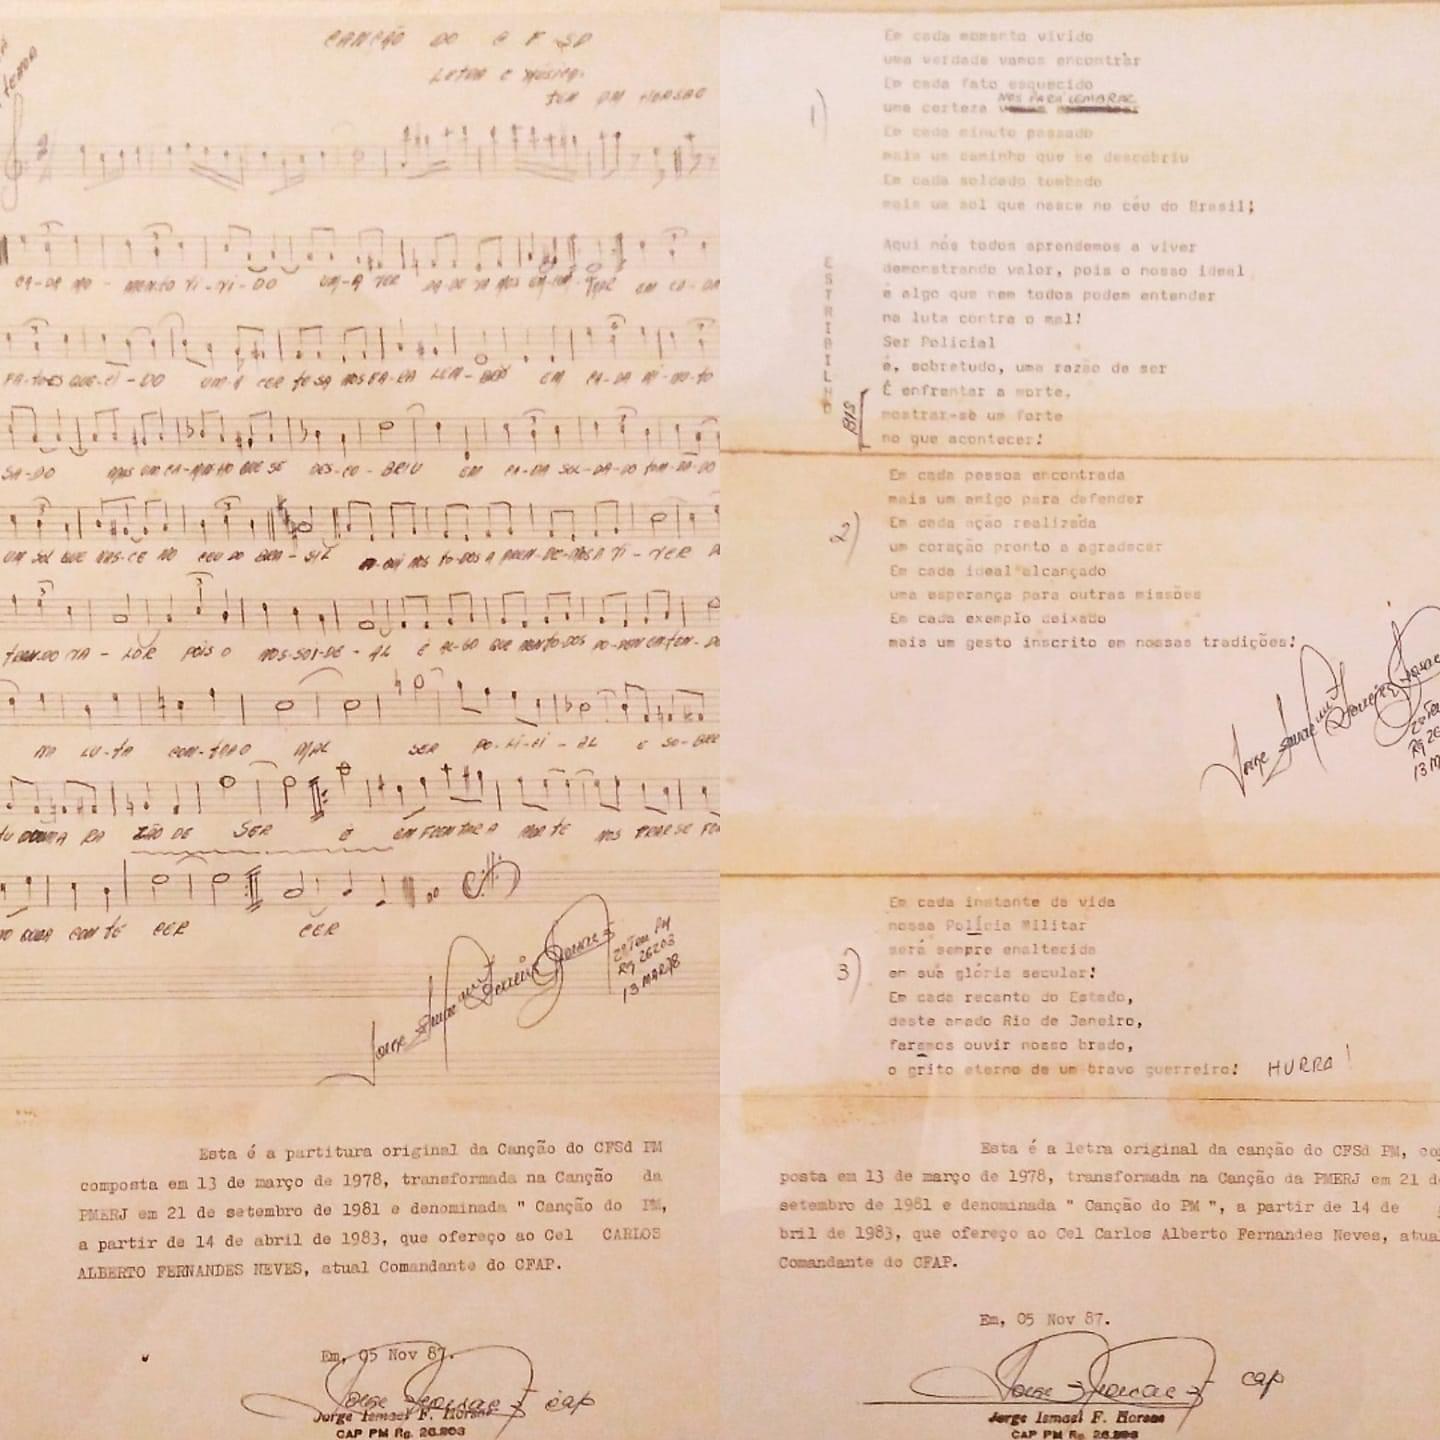 CANÇÃO DO C F SD
LETRA E MÚSICA:
TEN PM HORSAE
CA-DA MO - MEN-TO VI-VI-DO UM-A VER DA-DE VA MOS EN-CON-TRAR EM CA-DA
FA-TO ES QUE-CI-DO UM-A CER TE-SA NOS PA-RA LEM-BRAR EM CA-DA MI-NU-TO
SA-DO MAIS UM CA-MI-NHO QUE SE DES-CO-BRIU EM CA-DA SOL-DA-DO TOM-BA-DO
UM SOL QUE NAS-CE NO CEU DO BRA-SIL A-QUI NOS TO-DOS A PREN-DE-MOS A VI-VER D
TRAN-DO VA - LOR POIS O NOS-SO I-DE-AL É AL-GO QUE NEM TO-DOS PO-DEM EN-TEN-DE
NA LU-TA CON-TRA O MAL SER PO-LI-CI-AL E SO-BRE
TU DO UMA RA ZÃO DE SER É ENFRENTAR A MORTE MOS TRAR SE FO
NO QUE A CON TE CER CER
2º Ten PM
Rg 26203
13 MAR 78
Esta é a partitura original da Canção do CFSd PM
composta em 13 de março de 1978, transformada na Canção da
PMERJ em 21 de setembro de 1981 e denominada " Canção do PM,
a partir de 14 de abril de 1983, que ofereço ao Cel CARLOS
ALBERTO FERNANDES NEVES, atual Comandante do CFAP.
Em, 05 Nov 87.
cap
Jorge Ismael F. Horsae
CAP PM Rg. 26.203
1)
Em cada momento vivido
uma verdade vamos encontrar
Em cada fato esquecido
uma certeza NOS PARA LEMBRAR
Em cada minuto passado
mais um caminho que se descobriu
Em cada soldado tombado
mais um sol que nasce no céu do Brasil!
ESTRIBILHO
Aqui nós todos aprendemos a viver
demonstrando valor, pois o nosso ideal
é algo que nem todos podem entender
na luta contra o mal!
Ser Policial
é, sobretudo, uma razão de ser
BIS
É enfrentar a morte,
mostrar-se um forte
no que acontecer!
2)
Em cada pessoa encontrada
mais um amigo para defender
Em cada ação realizada
um coração pronto a agradecer
Em cada ideal alcançado
uma esperança para outras missões
Em cada exemplo deixado
mais um gesto inscrito em nossas tradições!
2º Ten
Rg 26
13 M
3)
Em cada instante da vida
nossa Polícia Militar
será sempre enaltecida
em sua glória secular!
Em cada recanto do Estado,
deste amado Rio de Janeiro,
faremos ouvir nosso brado,
o grito eterno de um bravo guerreiro! HURRA!
Esta é a letra original da canção do CFSd PM, com
posta em 13 de março de 1978, transformada na Canção da PMERJ em 21 de
setembro de 1981 e denominada " Canção do PM ", a partir de 14 de
bril de 1983, que ofereço ao Cel Carlos Alberto Fernandes Neves, atual
Comandante do CFAP.
Em, 05 Nov 87.
cap
Jorge Ismael F. Horsae
CAP PM Rg. 26.203